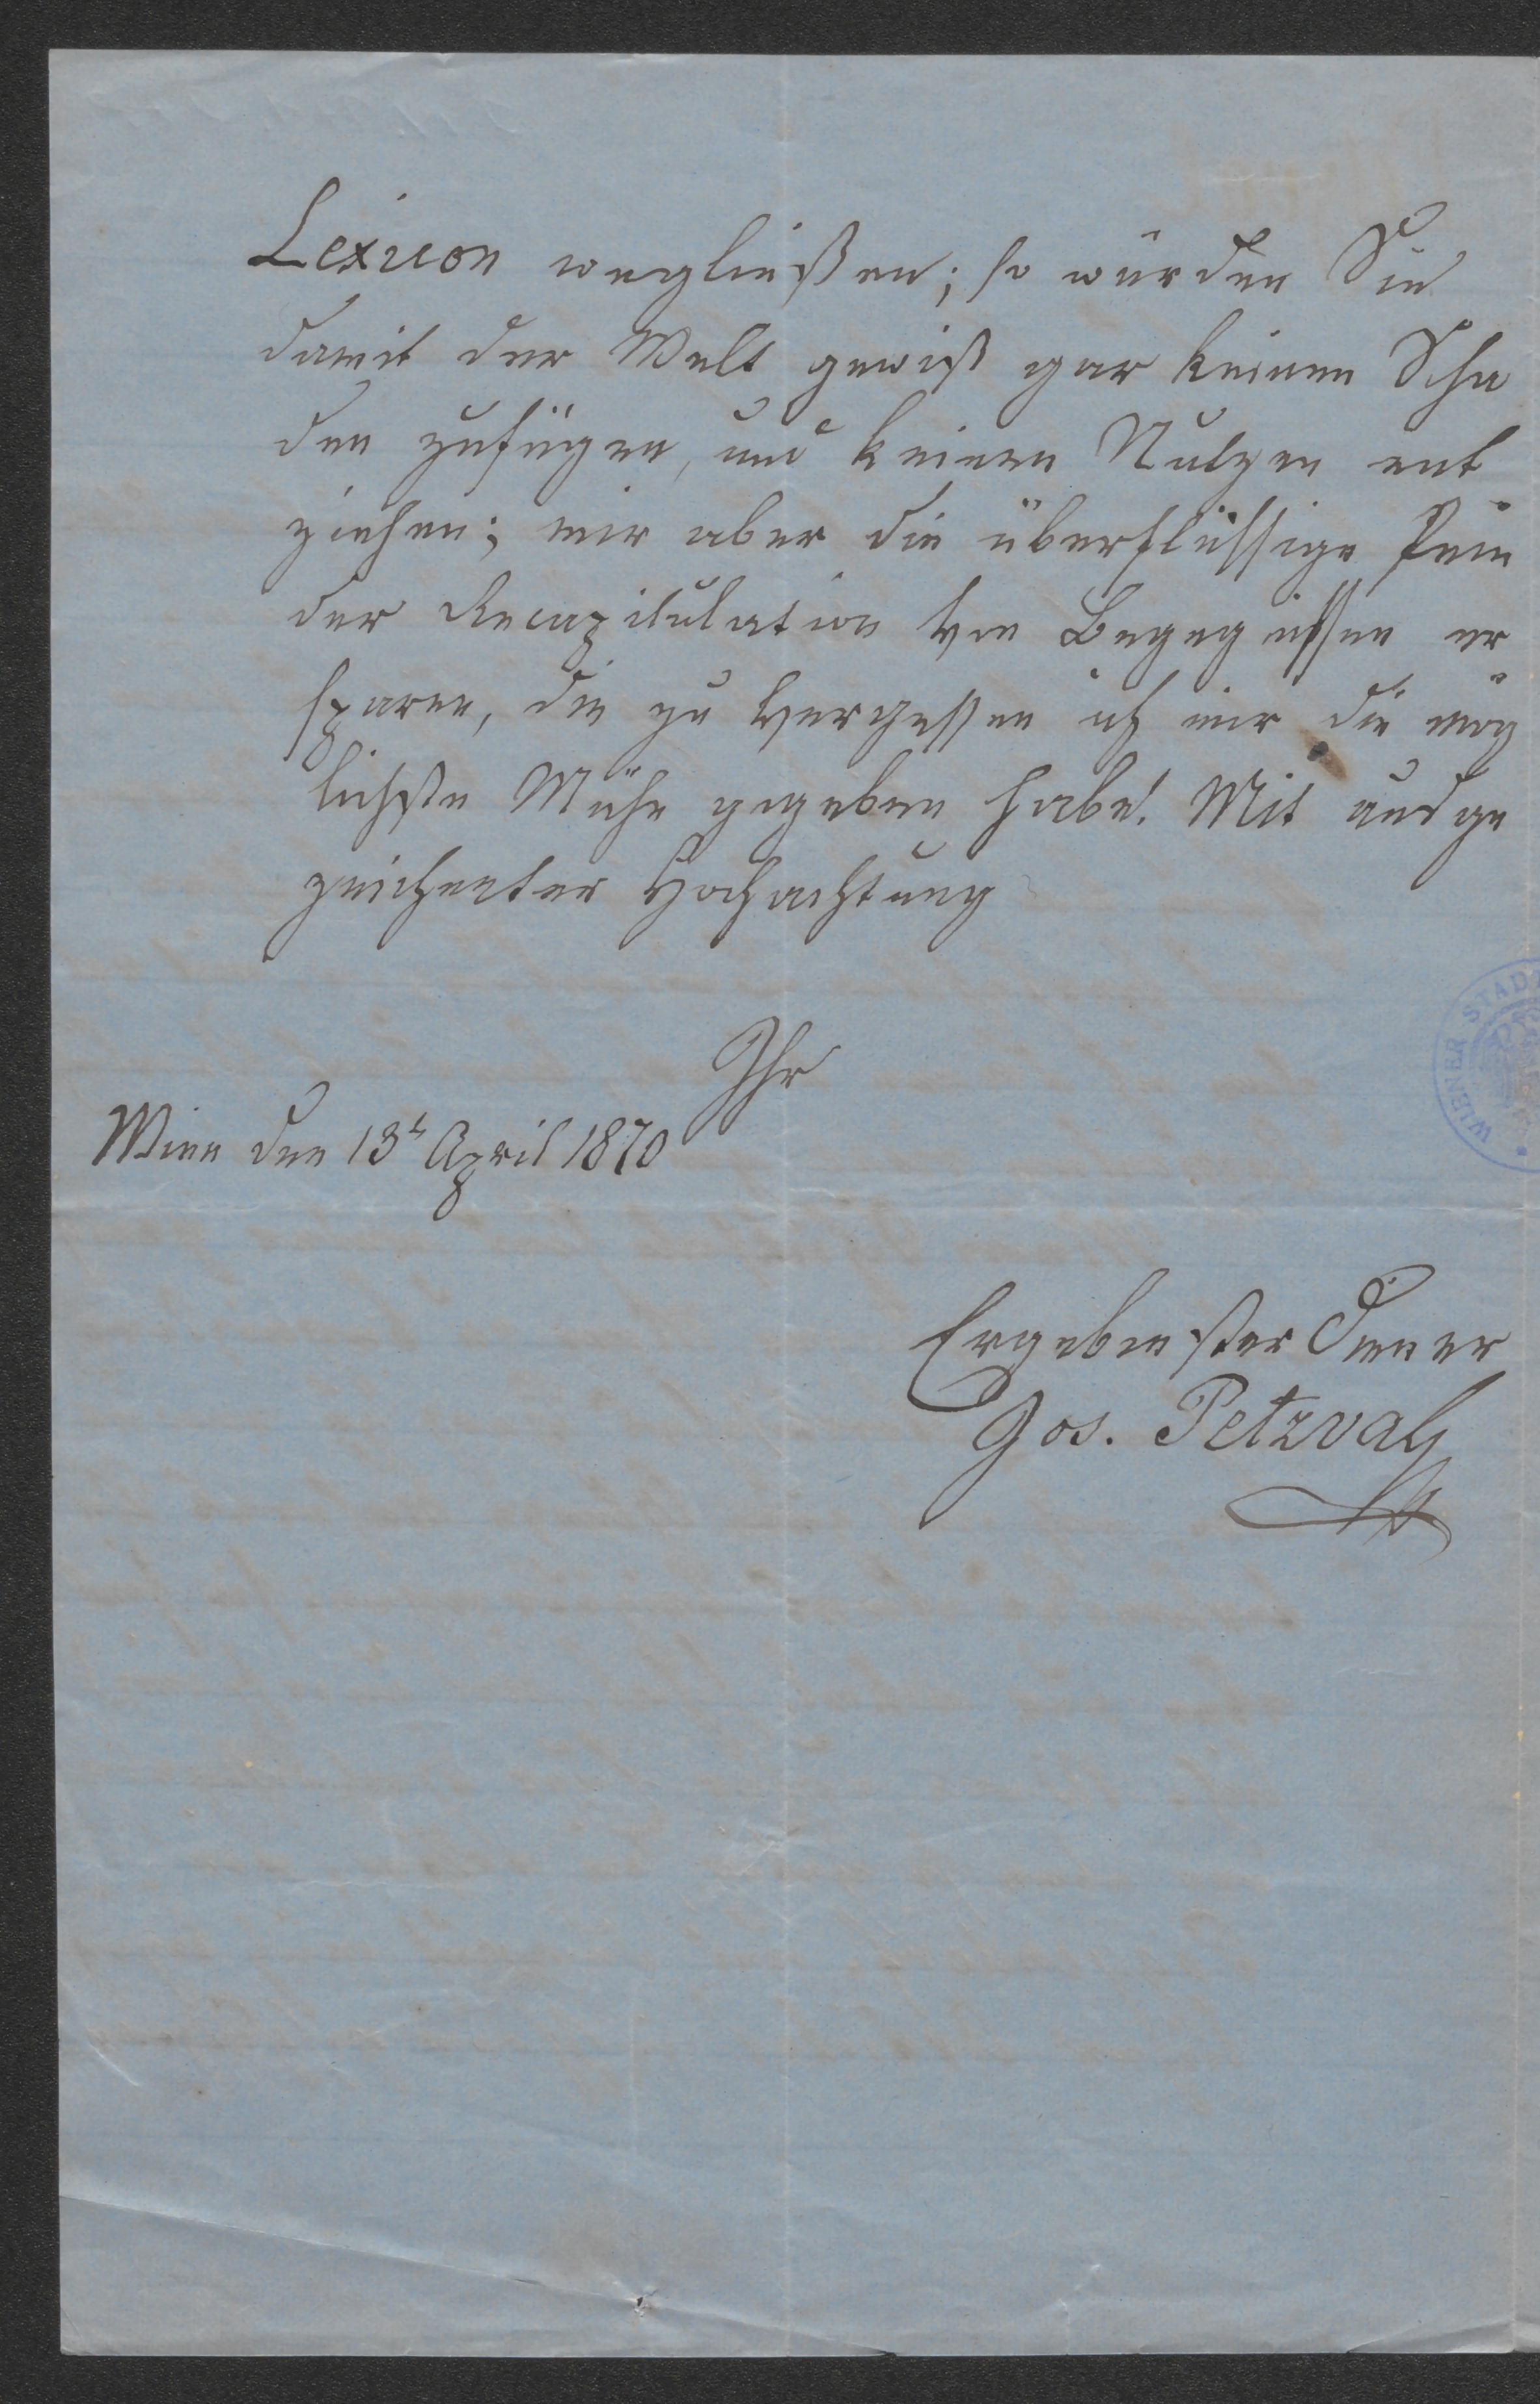 Lexicon wegließen; so würden Sie
damit der Welt gewiß gar keinen Scha
den zufügen, und keinen Nutzen ent
ziehen; mir aber die überflüssige Pein
der Recapitulation von Begegnissen er
sparen, die zu vergessen ich mir die mög
lichste Mühe gegeben habe. Mit ausge
zeichneter Hochachtung
Ihr
Wien den 13t April 1870
Ergebenster Diener
Jos. Petzval
WIENER STAD